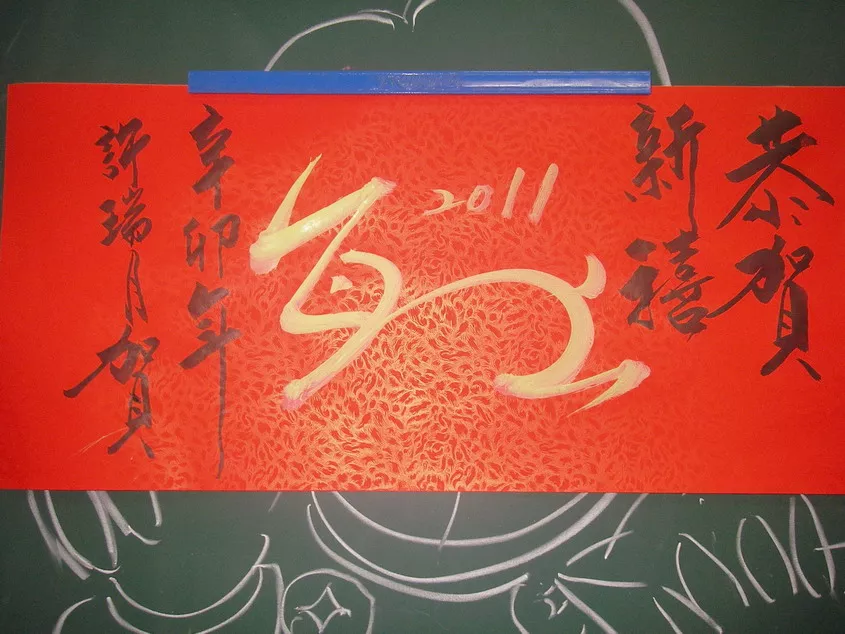 恭賀
新禧
2011
辛卯年
許瑞月賀